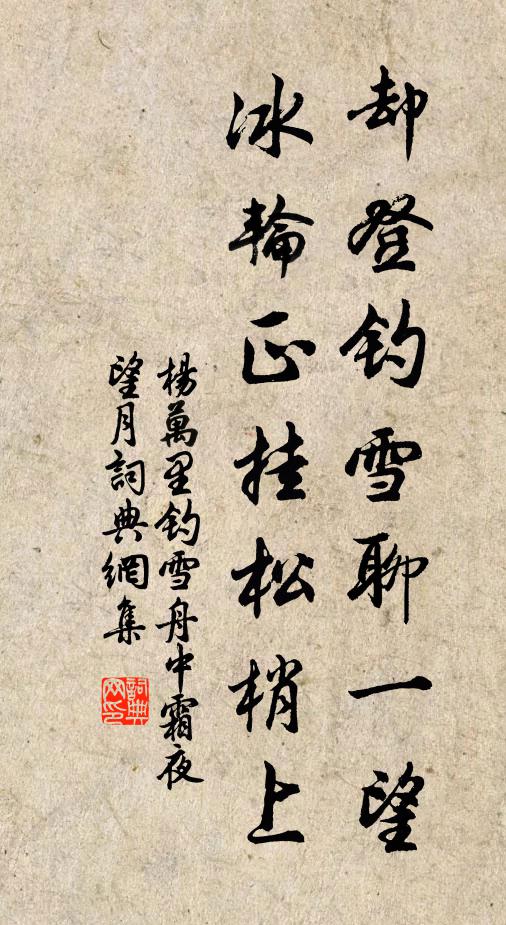 却登釣雪聊一望
冰輪正挂松梢上
楊萬里釣雪舟中霜夜
望月詞典網集
詞典
网印